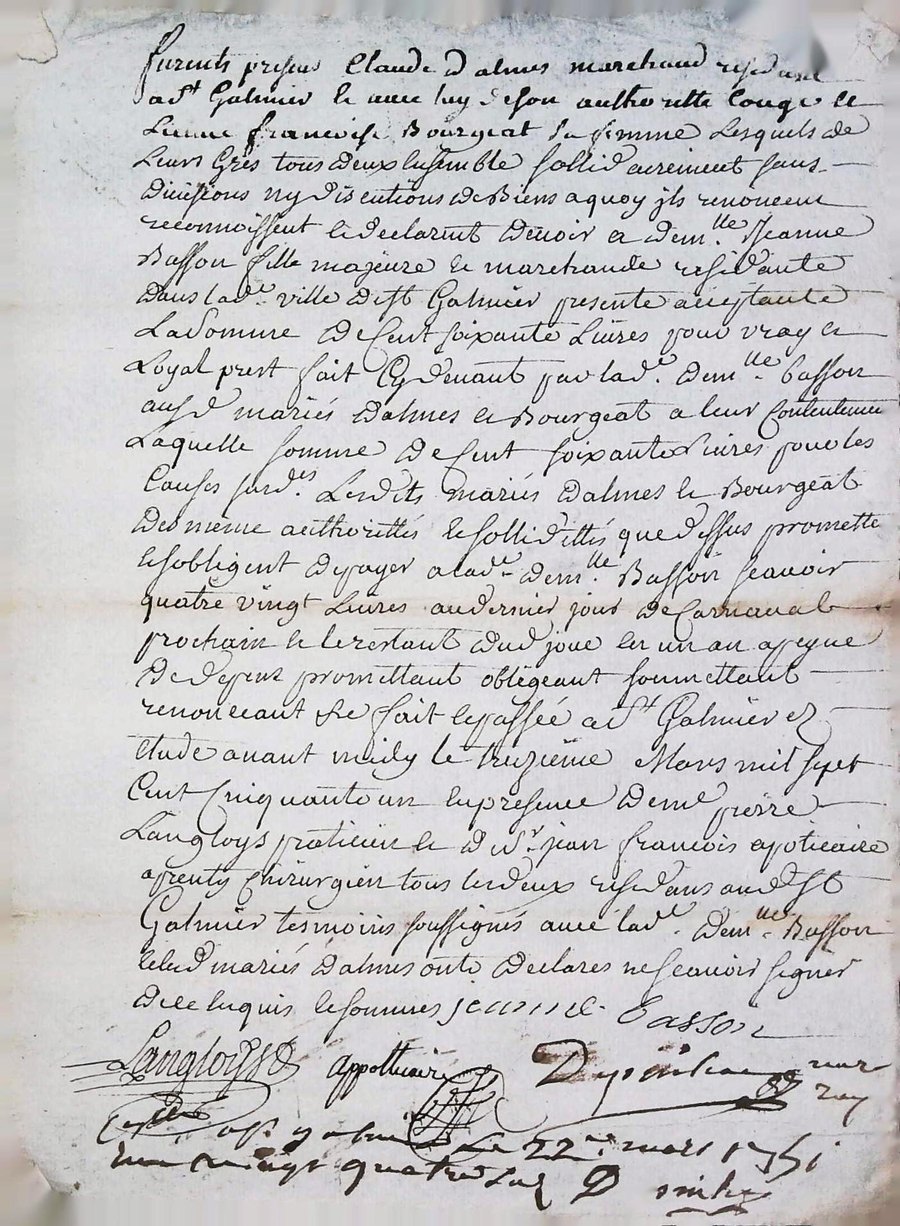 furents presens Claude Dalmes marchand residant
a St Galmier & avec luy de son authoritté congé &
Licence francoise Bourgeat sa femme Lesquels de
Leurs Grés tous deux Ensemble sollidairement sans
divisions ny discutions de Biens a quoy jls renoncent
reconnoissent & declarent devoir a demlle Jeanne
Basson fille majeure & marchande residante
dans lade ville de St Galmier presente acceptante
La Somme de Cent soixante Livres pour vray &
Loyal prest fait Cy devant par lade demlle basson
ausd mariés dalmes & Bourgeat a leur Contentement
Laquelle somme de Cent soixante Livres pour les
Causes surdes Lesdits mariés dalmes & Bourgeat
de meme authorittés & sollidittés que dessus promette
& sobligent de payer a lade demlle Basson scavoir
quatre vingt Livres au dernier jour de Carnaval
prochain & le restant dud jour en un an a peyne
de depens promettant obligeant soumettant
renoncant &c fait & passée a St Galmier ez
étude avant midy le treizième Mars mil sept
Cent Cinquante un En presence de me pierre
Langloys praticien & de sr jean francois apoticaire
aprenty chirurgien tous les deux residans aud St
Galmier tesmoins soussignés avec lade demlle Basson
& led mariés dalmes onts declarés ne scavoir signer
de ce Enquis & sommés jeanne Basson
Langloys Appotticaire
Le 22me mars 1751
vingt quatre sols